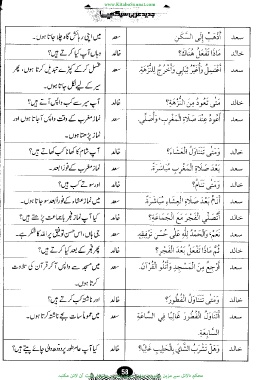 www.KitaboSunnat.com
سعد أَذْهَبُ إِلَى السَّكَنِ سعد میں اپنی رہائش گاہ چلا جاتا ہوں۔
خالد مَاذَا تَفْعَلُ هُنَاكَ؟ خالد وہاں آپ کیا کرتے ہیں؟
سعد أَغْتَسِلُ وَأُغَيِّرُ ثِيَابِي وَأَخْرُجُ لِلنُّزْهَةِ. سعد غسل کر کے کپڑے تبدیل کرتا ہوں، پھر
سیر کے لیے نکل جاتا ہوں۔
خالد مَتَى تَعُودُ مِنَ النُّزْهَةِ؟ خالد آپ سیر سے کب واپس آتے ہیں؟
سعد أَعُودُ عِنْدَ صَلَاةِ الْمَغْرِبِ، وَأُصَلِّي. سعد نماز مغرب کے وقت واپس آ جاتا ہوں اور
نماز پڑھتا ہوں۔
خالد وَمَتَى تَتَنَاوَلُ الْعَشَاءَ؟ خالد آپ شام کا کھانا کب کھاتے ہیں؟
سعد بَعْدَ صَلَاةِ الْمَغْرِبِ مُبَاشَرَةً. سعد نماز مغرب کے فوراً بعد۔
خالد وَمَتَى تَنَامُ؟ خالد اور سوتے کب ہیں؟
سعد أَنَامُ بَعْدَ صَلَاةِ الْعِشَاءِ مُبَاشَرَةً. سعد میں نماز عشاء کے فوراً بعد سو جاتا ہوں۔
خالد أَتُصَلِّي الْفَجْرَ مَعَ الْجَمَاعَةِ؟ خالد کیا آپ نماز فجر باجماعت پڑھتے ہیں؟
سعد نَعَمْ، وَالْحَمْدُ لِلَّهِ عَلَى حُسْنِ تَوْفِيقِهِ. سعد جی ہاں، اس حسن توفیق پر اللہ کا شکر ہے۔
خالد ثُمَّ مَاذَا تَفْعَلُ بَعْدَ الْفَجْرِ؟ خالد پھر فجر کے بعد کیا کرتے ہیں؟
سعد أَرْجِعُ مِنَ الْمَسْجِدِ وَأَتْلُو الْقُرْآنَ. سعد میں مسجد سے واپس آ کر قرآن کی تلاوت
کرتا ہوں۔
خالد وَمَتَى تَتَنَاوَلُ الْفَطُورَ؟ خالد اور ناشتہ کب کرتے ہیں؟
سعد أَتَنَاوَلُ الْفَطُورَ غَالِبًا فِي السَّاعَةِ سعد میں عموماً سات بجے ناشتہ کرتا ہوں۔
السَّابِعَةِ.
خالد وَهَلْ تَشْرَبُ الشَّايَ بِالْحَلِيبِ عَادَةً؟ خالد کیا آپ عام طور پر دودھ والی چائے پیتے ہیں؟
58